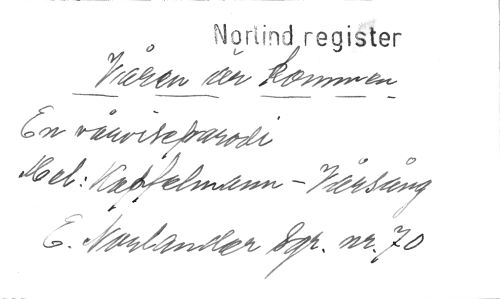 Norlind register
Våren är kommen
En vårviseparodi
Mel: Kapfelmann - Vårsång
E. Norlander Sgr. nr. 70